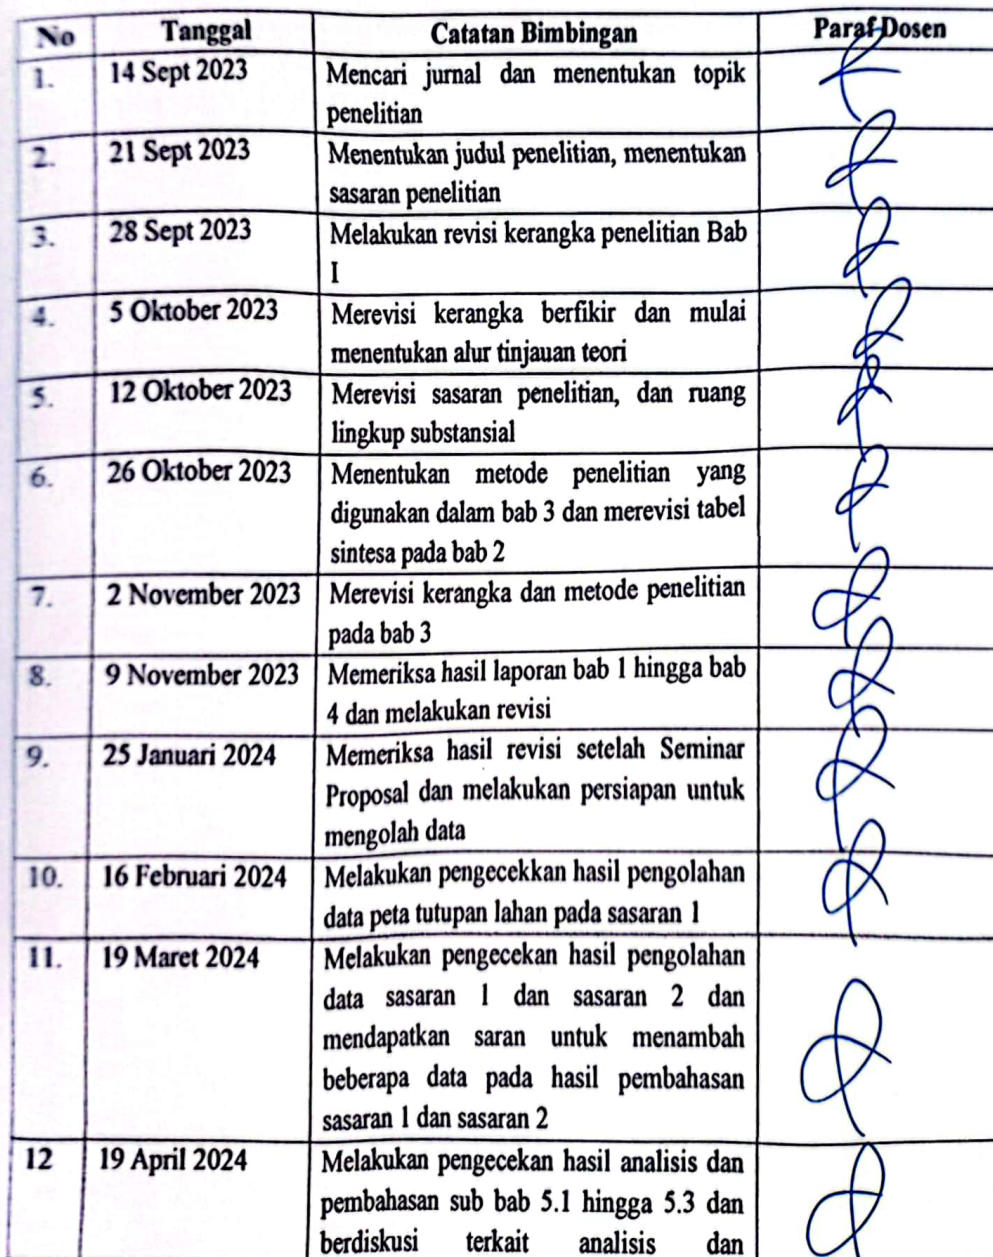 No Tanggal Catatan Bimbingan Paraf Dosen
1. 14 Sept 2023 Mencari jurnal dan menentukan topik
penelitian
2. 21 Sept 2023 Menentukan judul penelitian, menentukan
sasaran penelitian
3. 28 Sept 2023 Melakukan revisi kerangka penelitian Bab
I
4. 5 Oktober 2023 Merevisi kerangka berfikir dan mulai
menentukan alur tinjauan teori
5. 12 Oktober 2023 Merevisi sasaran penelitian, dan ruang
lingkup substansial
6. 26 Oktober 2023 Menentukan metode penelitian yang
digunakan dalam bab 3 dan merevisi tabel
sintesa pada bab 2
7. 2 November 2023 Merevisi kerangka dan metode penelitian
pada bab 3
8. 9 November 2023 Memeriksa hasil laporan bab 1 hingga bab
4 dan melakukan revisi
9. 25 Januari 2024 Memeriksa hasil revisi setelah Seminar
Proposal dan melakukan persiapan untuk
mengolah data
10. 16 Februari 2024 Melakukan pengecekkan hasil pengolahan
data peta tutupan lahan pada sasaran 1
11. 19 Maret 2024 Melakukan pengecekan hasil pengolahan
data sasaran 1 dan sasaran 2 dan
mendapatkan saran untuk menambah
beberapa data pada hasil pembahasan
sasaran 1 dan sasaran 2
12 19 April 2024 Melakukan pengecekan hasil analisis dan
pembahasan sub bab 5.1 hingga 5.3 dan
berdiskusi terkait analisis dan